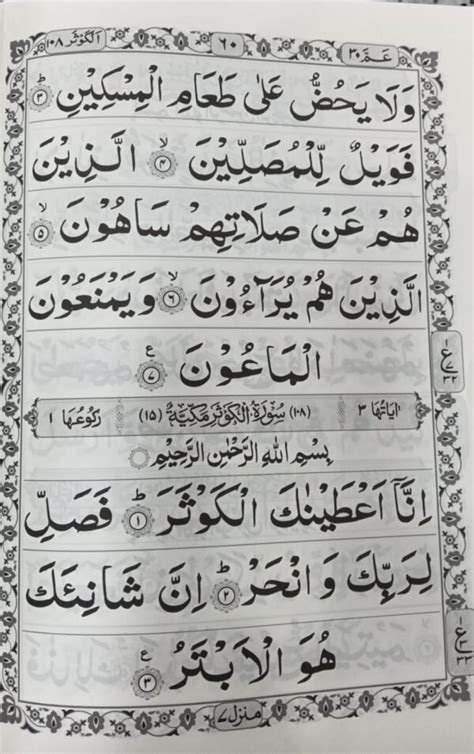 عَمَّ ٣٠ ٦٠ اَلْكَوْثَر ١٠٨
وَلَا يَحُضُّ عَلٰى طَعَامِ الْمِسْكِيْنِ ؕ ۝٣
فَوَيْلٌ لِّلْمُصَلِّيْنَ ۙ ۝٤ الَّذِيْنَ
هُمْ عَنْ صَلَاتِهِمْ سَاهُوْنَ ۙ ۝٥
الَّذِيْنَ هُمْ يُرَآءُوْنَ ۙ ۝٦ وَيَمْنَعُوْنَ
الْمَاعُوْنَ ۝٧ ع
اٰيَاتُهَا ٣ (١٠٨) سُوْرَةُ الْكَوْثَرِ مَكِّيَّةٌ (١٥) رُكُوْعُهَا ١
بِسْمِ اللّٰهِ الرَّحْمٰنِ الرَّحِيْمِ ۝
اِنَّآ اَعْطَيْنٰكَ الْكَوْثَرَ ؕ ۝١ فَصَلِّ
لِرَبِّكَ وَانْحَرْ ؕ ۝٢ اِنَّ شَانِئَكَ
هُوَ الْاَبْتَرُ ۝٣ ع
منزل ٧